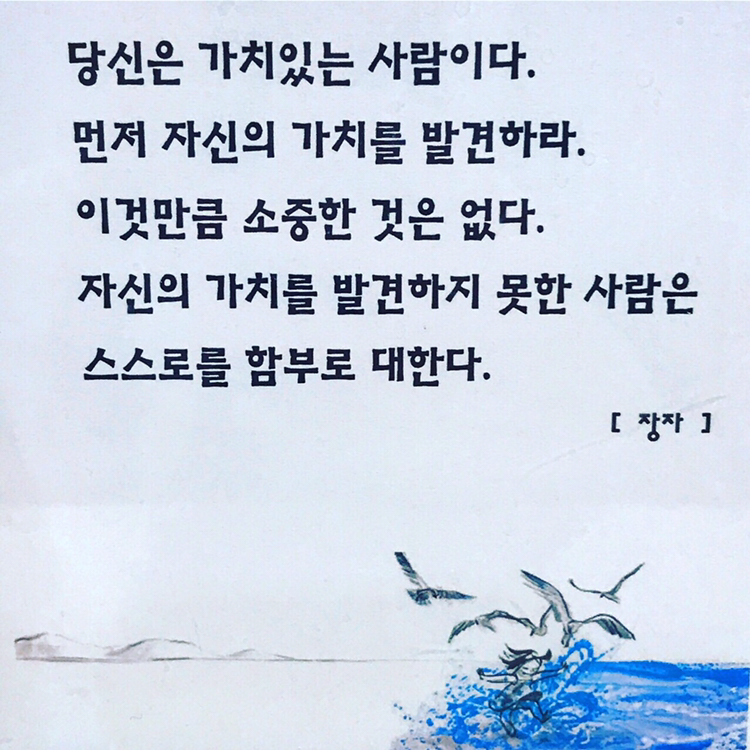 당신은 가치있는 사람이다.
먼저 자신의 가치를 발견하라.
이것만큼 소중한 것은 없다.
자신의 가치를 발견하지 못한 사람은
스스로를 함부로 대한다.
[ 장자 ]